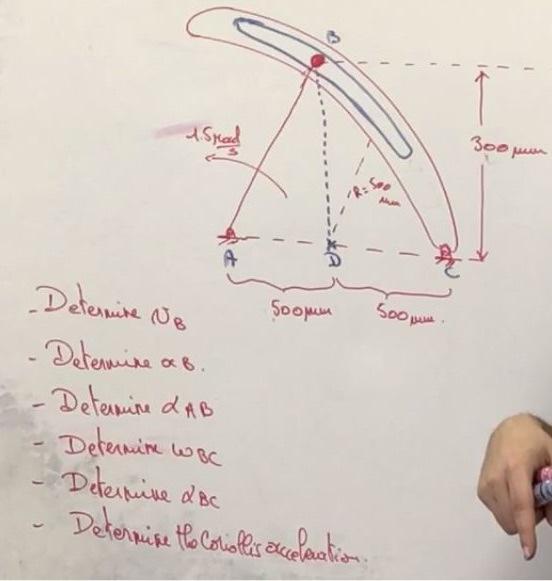 B
1.5 rad/s
300 mm
R=500 mm
A
D
C
500mm
500mm.
- Determine VB
- Determine aB.
- Determine αAB
- Determine ωBC
- Determine αBC
- Determine the Coriollis acceleration.